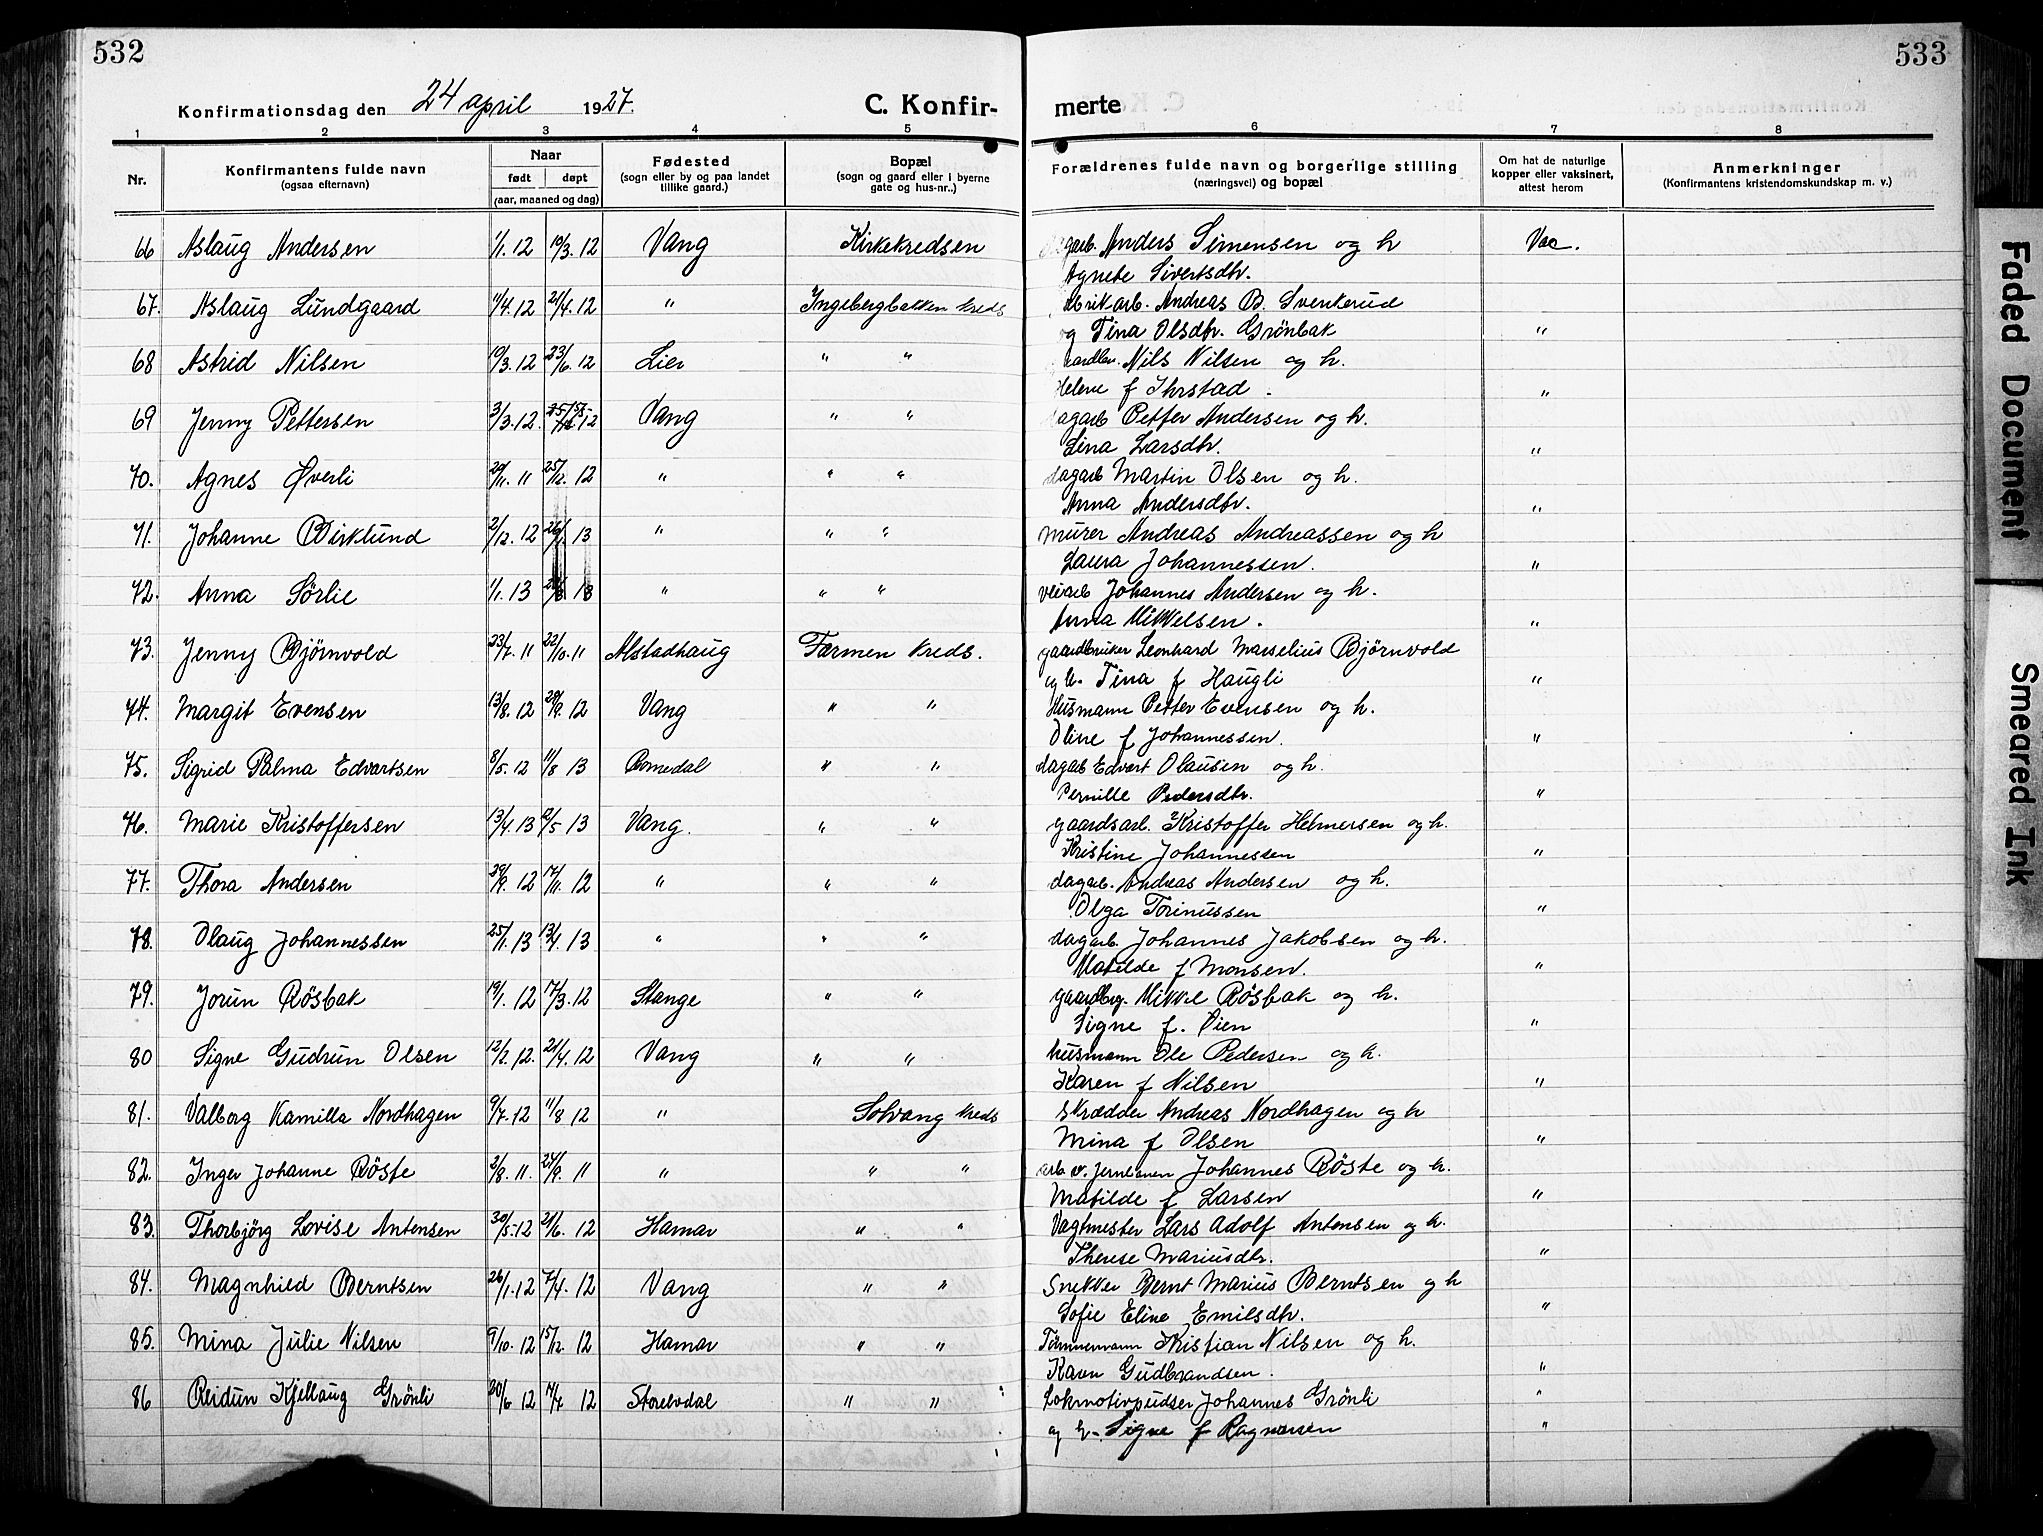 532
533
Konfirmationsdag den 24 april 1927.
C. Konfir- merte
1 2 3 4 5 6 7 8
Nr.
Konfirmantens fulde navn
(ogsaa efternavn)
Naar
født døpt
(aar, maaned og dag)
Fødested
(sogn eller by og paa landet
tillike gaard.)
Bopæl
(sogn og gaard eller i byerne
gate og hus-nr..)
Forældrenes fulde navn og borgerlige stilling
(næringsvei) og bopæl
Om hat de naturlige
kopper eller vaksinert,
attest herom
Anmerkninger
(Konfirmantens kristendomskundskap m. v.)
66 Aslaug Andersen 1/1. 12 19/3. 12 Vang Kirkekredsen Anders Simensen og h Vac.
Agnete Sivertsdtr.
67. Aslaug Lundgaard 11/4. 12 21/4. 12 " Ingebergbakken kreds Andreas B. Svenkerud
og Tina Olsdtr. Grönbak "
68 Astrid Nilsen 19/3. 12 23/6. 12 Lier " " Nils Nilsen og h.
Helene f Ihrstad. "
69 Jenny Pettersen 3/3. 12. Vang " " dagarb Petter Andersen og h.
Lina Larsdtr. "
70. Agnes Øverli 29/11. 11 25/12. 12 " " " dagarb Martin Olsen og h.
Anna Andersdtr. "
71. Johanne Birklund 2/12. 12 26/1. 13 " " " murer Andreas Andreassen og h
Laura Johannessen. "
72. Anna Sörlie 1/1. 13 " " " veiarb Johannes Andersen og h.
Anna Mikkelsen. "
73. Jenny Björnvold 23/7. 11 22/10. 11 Alstadhaug Færmen kreds. gaardbruker Leonhard Marselius Björnvold
og h. Tina f Haugli "
74. Margit Evensen 13/8. 12 29/9. 12 Vang " " Husmann Petter Evensen og h.
Oline f Johannessen. "
75. Sigrid Palma Edvartsen 8/5. 12 11/8 13 Romedal " " dagarb Edvart Olausen og h.
Pernille Pedersdtr. "
76. Marie Kristoffersen 13/4. 13 12/5 13 Vang. " " gaardsarb. Kristoffer Helmersen og h.
Kristine Johannessen "
77. Thora Andersen 29/9. 12 17/11. 12 " " " dagarb. Andreas Andersen og h.
Olga Torinussen "
78. Olaug Johannessen 25/1. 13 13/4. 13 " " " dagarb. Johannes Jakobsen og h.
Matilde f Monsen. "
79. Jorun Rösbak 19/1. 12 17/3. 12 Stange " " gaardbr. Mikkel Rösbak og h.
Signe f. Øien "
80 Signe Gudrun Olsen 12/2. 12. 21/4. 12 Vang " " husmann Ole Pedersen og h.
Karen f Nilsen "
81. Valborg Kamilla Nordhagen 9/7. 12 11/8 12 " Solvang kreds skrædder Andreas Nordhagen og h
Mina f Olsen "
82. Inger Johanne Röste 2/8. 11. 24/9. 11 " " " arb v. jernbanen Johannes Röste og h.
Matilde f Larsen "
83. Thorbjörg Lovise Antonsen 30/5. 12 21/6. 12 Hamar " " Vagtmester Lars Adolf Antonsen og h.
Therese Mariusdtr. "
84. Magnhild Berntsen 26/1. 12 7/4. 12 Vang " " Snekker Bernt Marius Berntsen og h
Sofie Eline Emilsdtr. "
85. Mina Julie Nilsen 9/10. 12 15/12. 12 Hamar " " Tömmermann Kristian Nilsen og h.
Karen Gudbrandsen. "
86 Reidun Kjellaug Grönli 20/6 12 14/7 12 Storelvdal " " Lokmotivpudser Johannes Grönli "
og h. Signe f Ragnarsen "
Faded Document
Smeared Ink